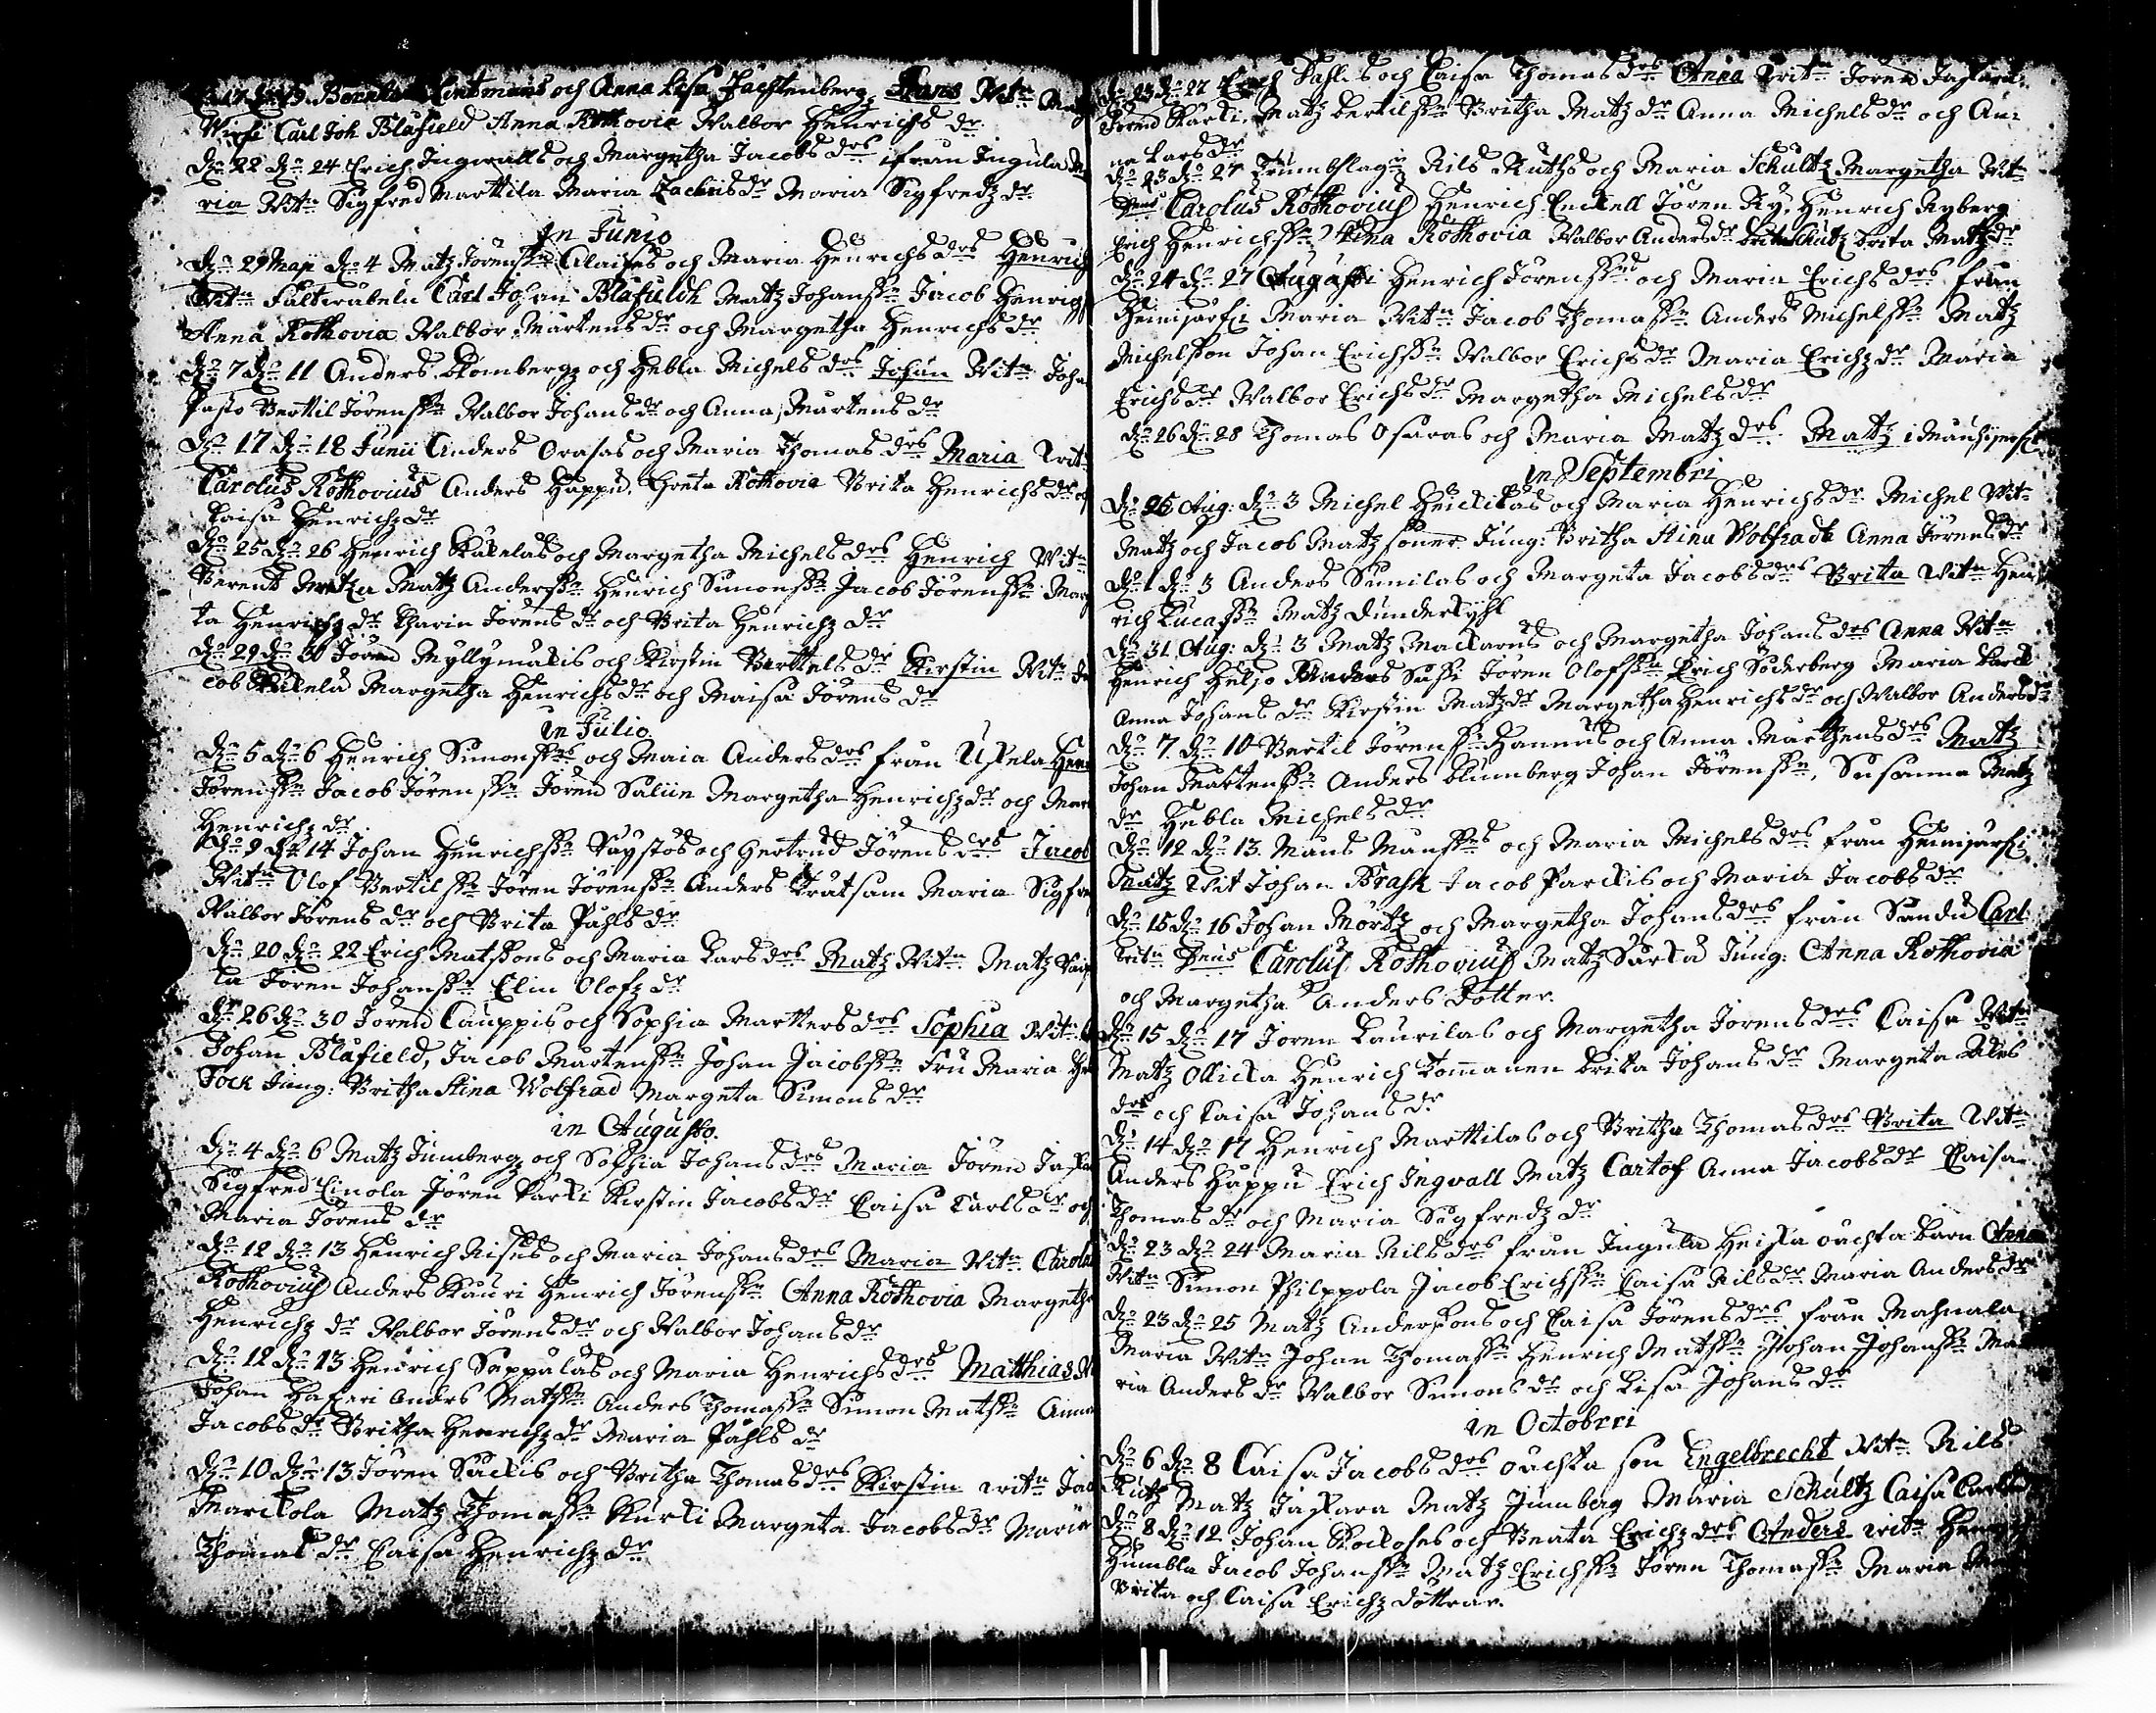 Lintmans och Anna Lisa Fachtenberg Hans Witn
Carl Joh Blåfield Anna Rothovia Walbor Henrichs dr
Dn 22 Dn 24 Erich Ingwalls och Margetha Jacobs drs från Ingula Ma
ria Witn Sigfred Marttila Maria Zachris dr Maria Sigfredz dr
In Junio
Dn 29 Maji Dn 4 Matz Jörenssn och Maria Henrichs drs Henrich
Witn Carl Johan Blåfieldh Matz Johanssn Jacob Henrich
Anna Rothovia Walbor Mårtens dr och Margetha Henrichs dr
Dn 7 Dn 11 Anders Blombergz och Hebla Michels drs Johan Witn Joha
Bertil Jörenssn Walbor Johans dr och Anna Mårtens dr
Dn 17 Dn 18 Junii Anders Orasas och Maria Thomas drs Maria Witn
Carolus Rothovius Anders Happu, Greta Rothovia Brita Henrichs dr och
Caisa Henrichz dr
Dn 25 Dn 26 Henrich Käkelas och Margetha Michels drs Henrich Witn
Berent Matz Anderssn Henrich Simonssn Jacob Jörenssn Marg
ta Henrichz dr Karin Jörens dr och Brita Henrichz dr
Dn 29 Dn 30 Jören Myllymäkis och Kirstin Berttels dr Kirstin Witn Ja
cob Käkelä Margetha Henrichs dr och Maisa Jörens dr
in Julio
Dn 5 Dn 6 Henrich Simonssns och Maia Anders drs från Uskela Hen
Jörenssn Jacob Jörenssn Jören Saliin Margetha Henrichz dr och Mar
Henrichz dr
Dn 9 Dn 14 Johan Henrichssn och Gertrud Jörens drs Jacob
Witn Olof Bertilssn Jören Jörenssn Anders Maria Sigfre
Walbor Jörens dr och Brita Påhls dr
Dn 20 Dn 22 Erich Matssons och Maria Lars drs Matz Witn Matz
la Jören Johanssn Elin Olofz dr
Dn 26 Dn 30 Jören Cauppis och Sophia Martters drs Sophia Witn
Johan Blåfield, Jacob Mårtenssn Johan Jacobssn Fru Maria
Fock Jung: Britha Stina Wolfrad Margeta Simons dr
in Augusto.
Dn 4 Dn 6 Matz Jumbergz och Sophia Johans drs Maria Jören
Sigfred Einola Jören Kirstin Jacobs dr Caisa Carls dr och
Maria Jörens dr
Dn 12 Dn 13 Henrich och Maria Johans drs Maria Witn Carolus
Rothovius Anders Kauri Henrich Jörenssn Anna Rothovia Margetha
Henrichz dr Walbor Jörens dr och Walbor Johans dr
Dn 12 Dn 13 Henrich Seppälas och Maria Henrichs drs Matthias
Johan Anders Matssn Anders Thomassn Simon Matssn Anna
Jacobs dr Britha Henrichz dr Maria Påhls dr
Dn 10 Dn 13 Jören och Britha Thomas drs Kirstin Witn
Marckola Matz Thomassn Kurki Margeta Jacobs dr Maria
Thomas dr Caisa Henrichz dr
Dn 23 Dn 27 Erich Påhls och Caisa Thomas drs Anna Witn Jören
Jören Matz Bertilssn Britha Matz dr Anna Michels dr och An
na Lars dr
Dn 23 Dn 27 Trumbslag Nils Ruthz och Maria Schultz Margetha Witn
Dnus Carolus Rothovius Henrich Enckell Jören Ky, Henrich Nyberg
Erich Henrichssn Anna Rothovia Walbor Anders dr Brita Schultz Brita Matz dr
Dn 24 Dn 27 Augusti Henrich Jörenssns och Maria Erichs drs från
Heinijärfi Maria Witn Jacob Thomassn Anders Michelssn Matz
Michelsson Johan Erichssn Walbor Erichs dr Maria Erichz dr Maria
Erichs dr Walbor Erichs dr Margetha Michels dr
Dn 26 Dn 28 Thomas och Maria Matz drs Matz i
in Septembri
Dn 25 Aug: Dn 3 Michel Heickilas och Maria Henrichs dr Michel Witn
Matz och Jacob Matz söner Jung: Britha Stina Wolfradt Anna Jörens dr
Dn 1 Dn 3 Anders Sunilas och Margeta Jacobs drs Brita Witn Hen
rich Lucassn Matz
Dn 31 Aug: Dn 3 Matz och Margetha Johans drs Anna Witn
Henrich Heljo Anders Jören Olofssn Erich Söderberg Maria
Anna Johans dr Kirstin Matz dr Margetha Henrichs dr och Walbor Anders dr
Dn 7 Dn 10 Bertil Jörenssn Hannus och Anna Mårthens drs Matz
Johan Mårtenssn Anders Blumberg Johan Jörenssn, Susanna Matz
dr Hebla Michels dr
Dn 12 Dn 13 Måns Månssns och Maria Michels drs från Heinijärfi
Matz Wit Johan Brask Jacob Parckis och Maria Jacobs dr
Dn 15 Dn 16 Johan Mörtz och Margetha Johans drs från Sandu Carl
Witn Dnus Carolus Rothovius Matz Jung: Anna Rothovia
och Margetha Anders Dotter.
Dn 15 Dn 17 Jören Laurilas och Margetha Jörens drs Caisa Witn
Matz Ollicka Henrich Tommanen Brita Johans dr Margeta
dr och Caisa Johans dr
Dn 14 Dn 17 Henrich Marttilas och Britha Thomas drs Brita Witn
Anders Happu Erich Ingvall Matz Cartof Anna Jacobs dr Caisa
Thomas dr och Maria Sigfredz dr
Dn 23 Dn 24 Maria Nils drs från Ingula oächta barn Anna
Witn Simon Philppola Jacob Erichssn Caisa Nils dr Maria Anders dr
Dn 23 Dn 25 Matz Anderssons och Caisa Jörens drs från Mahnala
Maria Witn Johan Thomassn Henrich Matssn Johan Johanssn Ma
ria Anders dr Walbor Simons dr och Lisa Johans dr
in Octobri
Dn 6 Dn 8 Caisa Jacobs drs oächta son Engelbrecht Witn Nils
Rutz Matz Jaskara Matz Jumberg Maria Schultz Caisa
Dn 8 Dn 12 Johan och Beata Erichz drs Anders Witn
Humbla Jacob Johanssn Matz Erichssn Jören Thomassn Maria
Brita och Caisa Erichz döttrar.